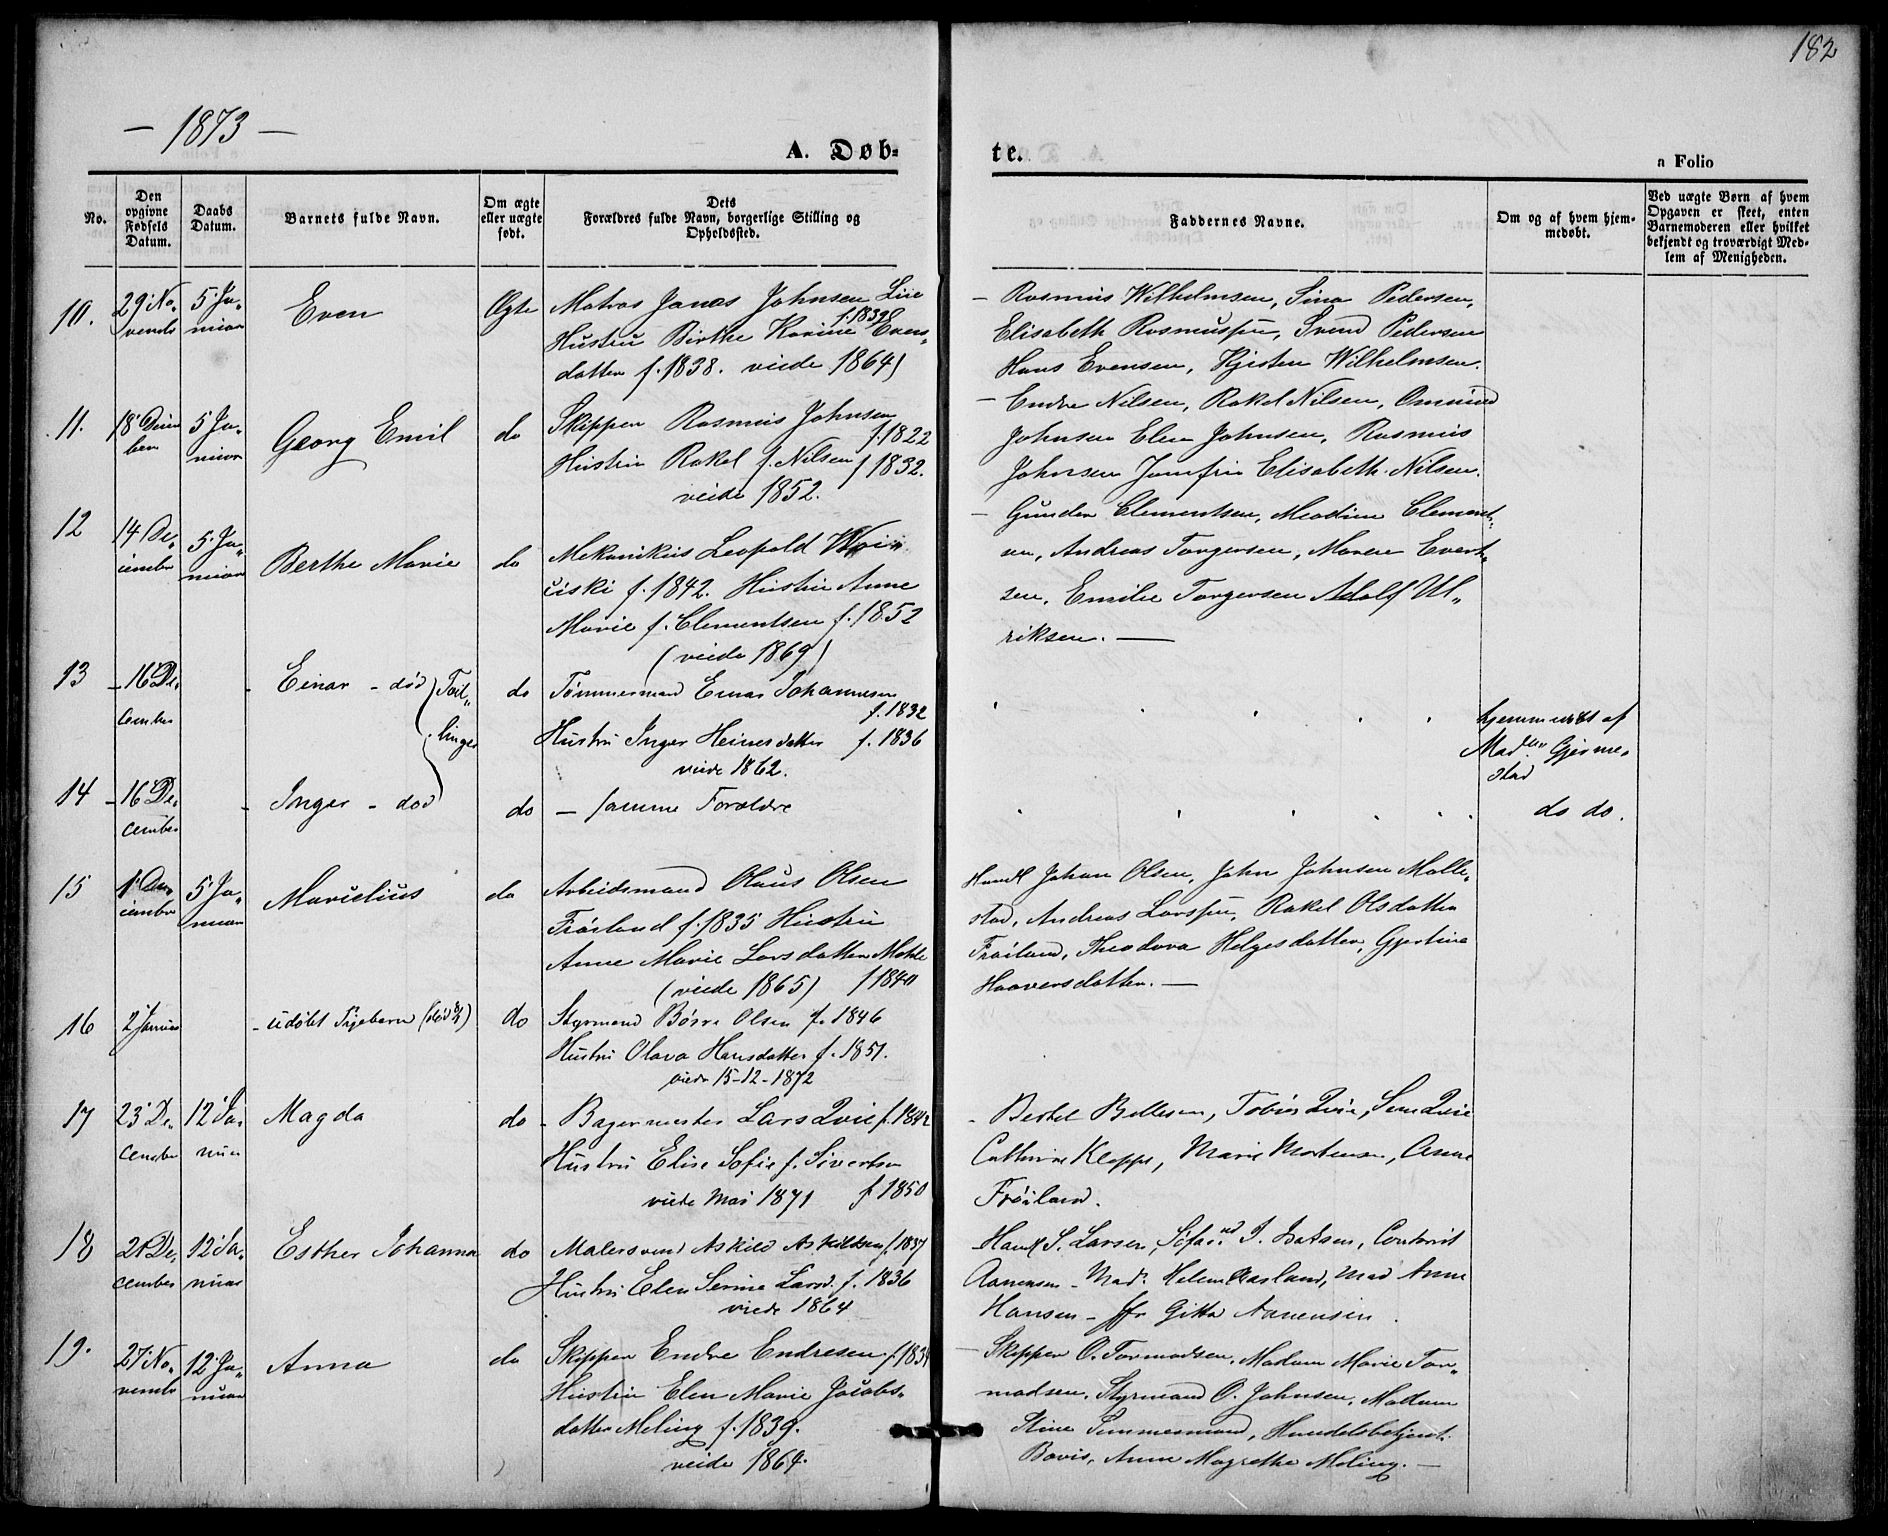 182
— 1873 —
A. Døb=
te.
a Folio
No.
Den opgivne Fødsels Datum.
Daabs Datum.
Barnets fulde Navn.
Om ægte eller uægte født.
Dets Forældres fulde Navn, borgerlige Stilling og Opholdssted.
Faddernes Navne.
Om og af hvem hjem-
medøbt.
Ved uægte Børn af hvem
Opgaven er skeet, enten
Barnemoderen eller hvilket
bekjendt og troværdigt Med-
lem af Menigheden.
10.
29 No-
vembr
5 Ja-
nuar
Even
Ægte
Matros Jonas Johnsen Liie
f. 1839
Hustru Birthe Karine Evens-
datter f. 1838. viede 1864)
— Rasmus Wilhelmsen, Sina Pedersen,
Elisabeth Rasmussen, Svend Pedersen
Hans Evensen, Kjisten Wilhelmsen.
11.
18 Decem
ber
5 Ja-
nuar
Georg Emil
do
Skipper Rasmus Johnsen
f. 1822
Hustru Rakel f. Nilsen f 1832.
viede 1852.
— Endre Nilsen, Rakel Nilsen, Omund
Johnsen Elen Johnsen, Rasmus
Johnsen Jomfru Elisabeth Nilsen.
12
14 De-
cembr
5 Ja-
nuar
Berthe Marie
do
Mekanikus Leopold
f. 1842. Hustru Anne
Marie f. Clementsen f. 1852
(viede 1869)
— Gunder Clementsen, Clement-
sen, Andreas Torgersen, Maren Evert-
sen, Emilie Torgersen Adolf Ul-
riksen. —
13
16 De-
cember
Einar - død
Tvil-
linger
do
Tømmermand Einar Johannesen
f. 1832
Hustru Inger Heinesdatter f. 1836
viede 1862.
hjemmedøbt af
Madm Gjerme-
stad
14
16 De-
cember
Inger - død
do
— samme Forældre
do do.
15
1 De-
cembr
5 Ja-
nuar
Marselius
do
Arbeidsmand Olaus Olsen
Frøiland f. 1835 Hustru
Anne Marie Larsdatter
(viede 1865) f 1840
Handl Johan Olsen, John Johnsen Malle-
stad, Andreas Larssen, Rakel Olsdatter
Frøiland, Theodora Helgesdatter, Gjertine
Haaversdatter. —
16
2 Januar
- udøbt Pigebarn (død 8/1)
do
Styrmand Børre Olsen f. 1846
Hustru Olava Hansdatter f. 1851.
viede 15-12-1872
17
23 De-
cember
12 Ja-
nuar
Magda
do
- Bagermester Lars Qvie f. 1842
Hustru Elise Sofie f. Sivertsen
viede Mai 1871 f 1850
- Bertel Bellesen, Tobias Qvie, Sven Qvie
Cathrine Kleppe, Marie Mortensen, Anne
Frøiland.
18
21 De-
cember
12 Ja-
nuar
Esther Johanna
do
Malersvend Askild Askildsen f. 1837
Hustru Elen Serine Larsd. f. 1836
viede 1864
Handl S. Larsen, Søfaend I. Isaksen, Contorist
Aanensen - Madm Helene Aarland, Mad Anne
Hansen - jfr Gitta Aanensen.
19.
27 No-
vembr
12 Ja-
nuar
Anna
do
Skipper Endre Endresen f. 1834
Hustru Elen Marie Jacobs-
datter Meling f. 1839.
viede 1864.
— Skipper O. Tormodsen, Madam Marie Tor-
modsen, Styrmand O. Johnsen, Madam
Stine Simmermand, Handelsbetjent
Bovis, Anne Magrethe Meling. —